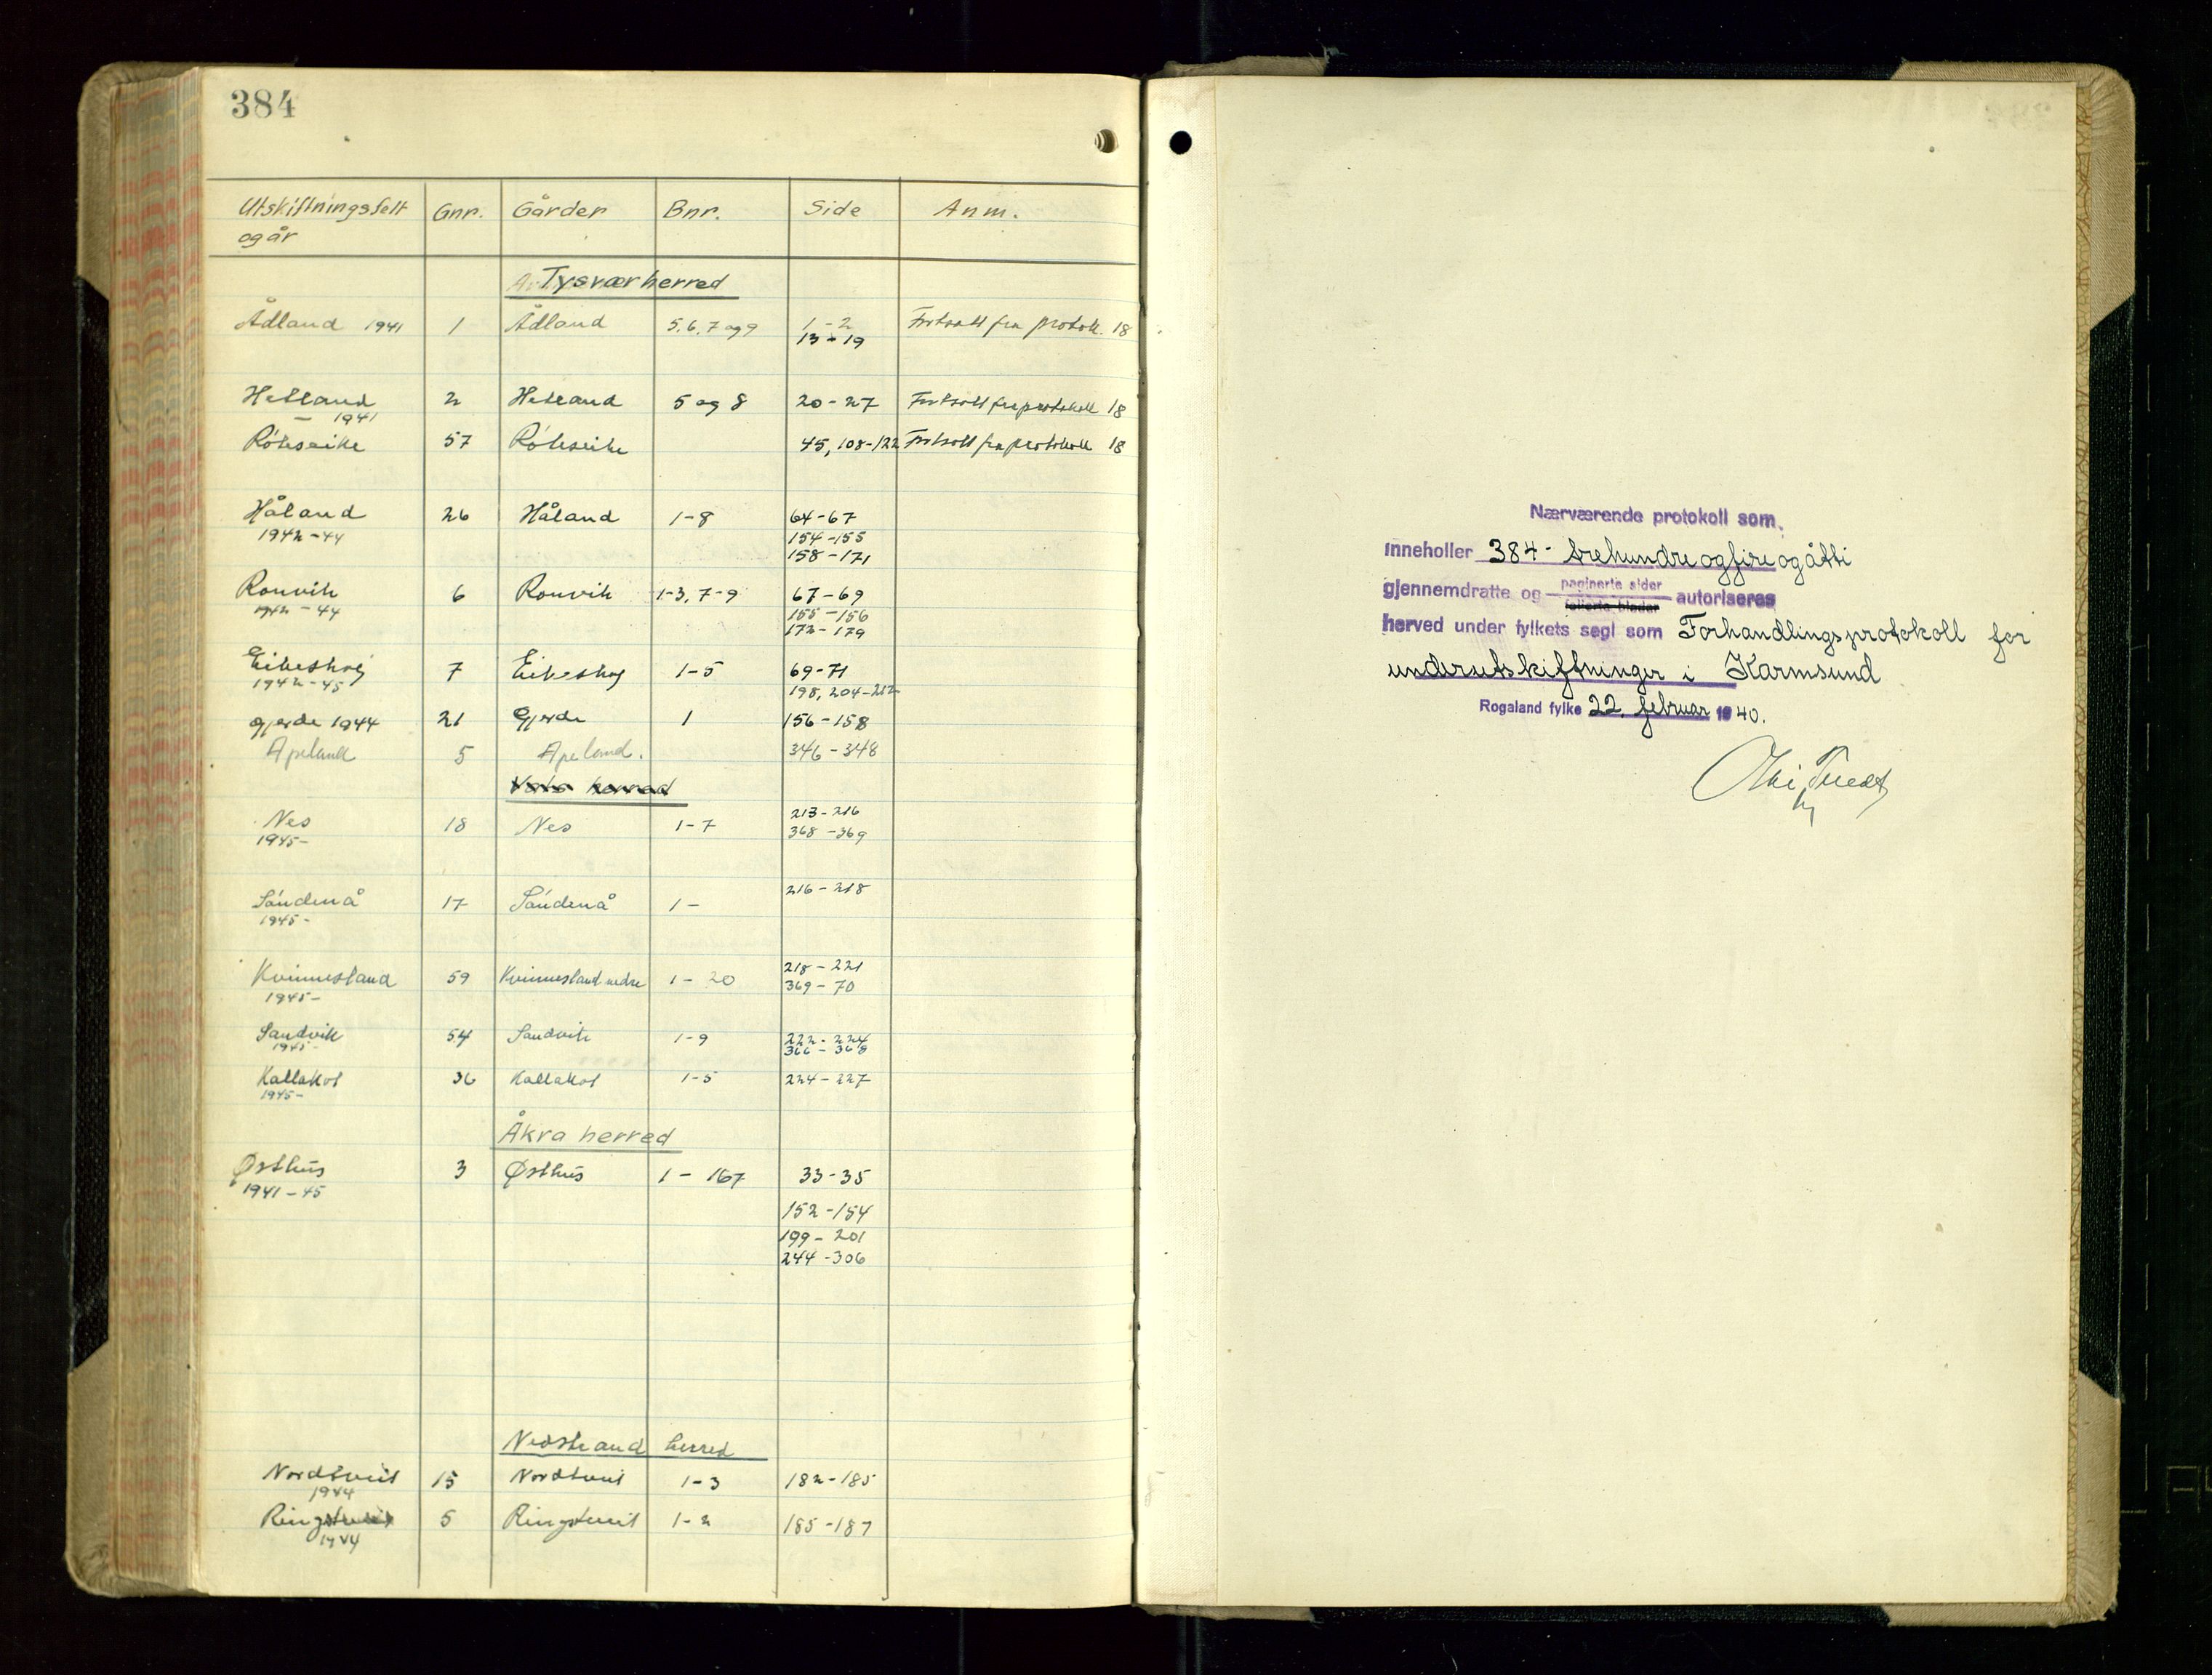 384
Utskiftningsfelt Gnr. Gårder Bnr. Side Anm.
og år
Tysvær herred
Ådland 1941 1 Ådland 5, 6, 7 og 9 1-2 Fortsatt fra protok. 18
13-19
Hetland 2 Hetland 5 og 8 20-27 Fortsatt fra protokoll 18
- 1941
57 45, 108-122 Fortsatt fra protokoll 18
Håland 26 Håland 1-8 64-67
1942-44 154-155
158-171
Ronvik 6 Ronvik 1-3, 7-9 67-69
1942-44 155-156
172-179
7 1-5 69-71
1942-45 198, 204-212
Gjerde 1944 21 Gjerde 1 156-158
Apeland 5 Apeland. 346-348
herred
Nes 18 Nes 1-7 213-216
1945- 368-369
Søndenå 17 Søndenå 1- 216-218
1945-
Kvinnesland 59 Kvinnesland nedre 1-20 218-221
1945- 369-70
Sandvik 54 Sandvik 1-9 222-224
1945- 366-368
Kallekot 36 Kallekot 1-5 224-227
1945-
Åkra herred
Østhus 3 Østhus 1-167 33-35
1941-45
152-154
199-201
244-306
Nedstrand herred
Nordtveit 15 Nordtveit 1-3 182-185
1944
Ringstveit 5 Ringstveit 1-2 185-187
1944
Nærværende protokoll som
inneholler 384- trehundreogfireogåtti
gjennemdratte og paginerte sider autoriseres
folierte blader
herved under fylkets segl som Forhandlingsprotokoll for
underutskiftninger i Karmsund
Rogaland fylke 22. februar 1940.